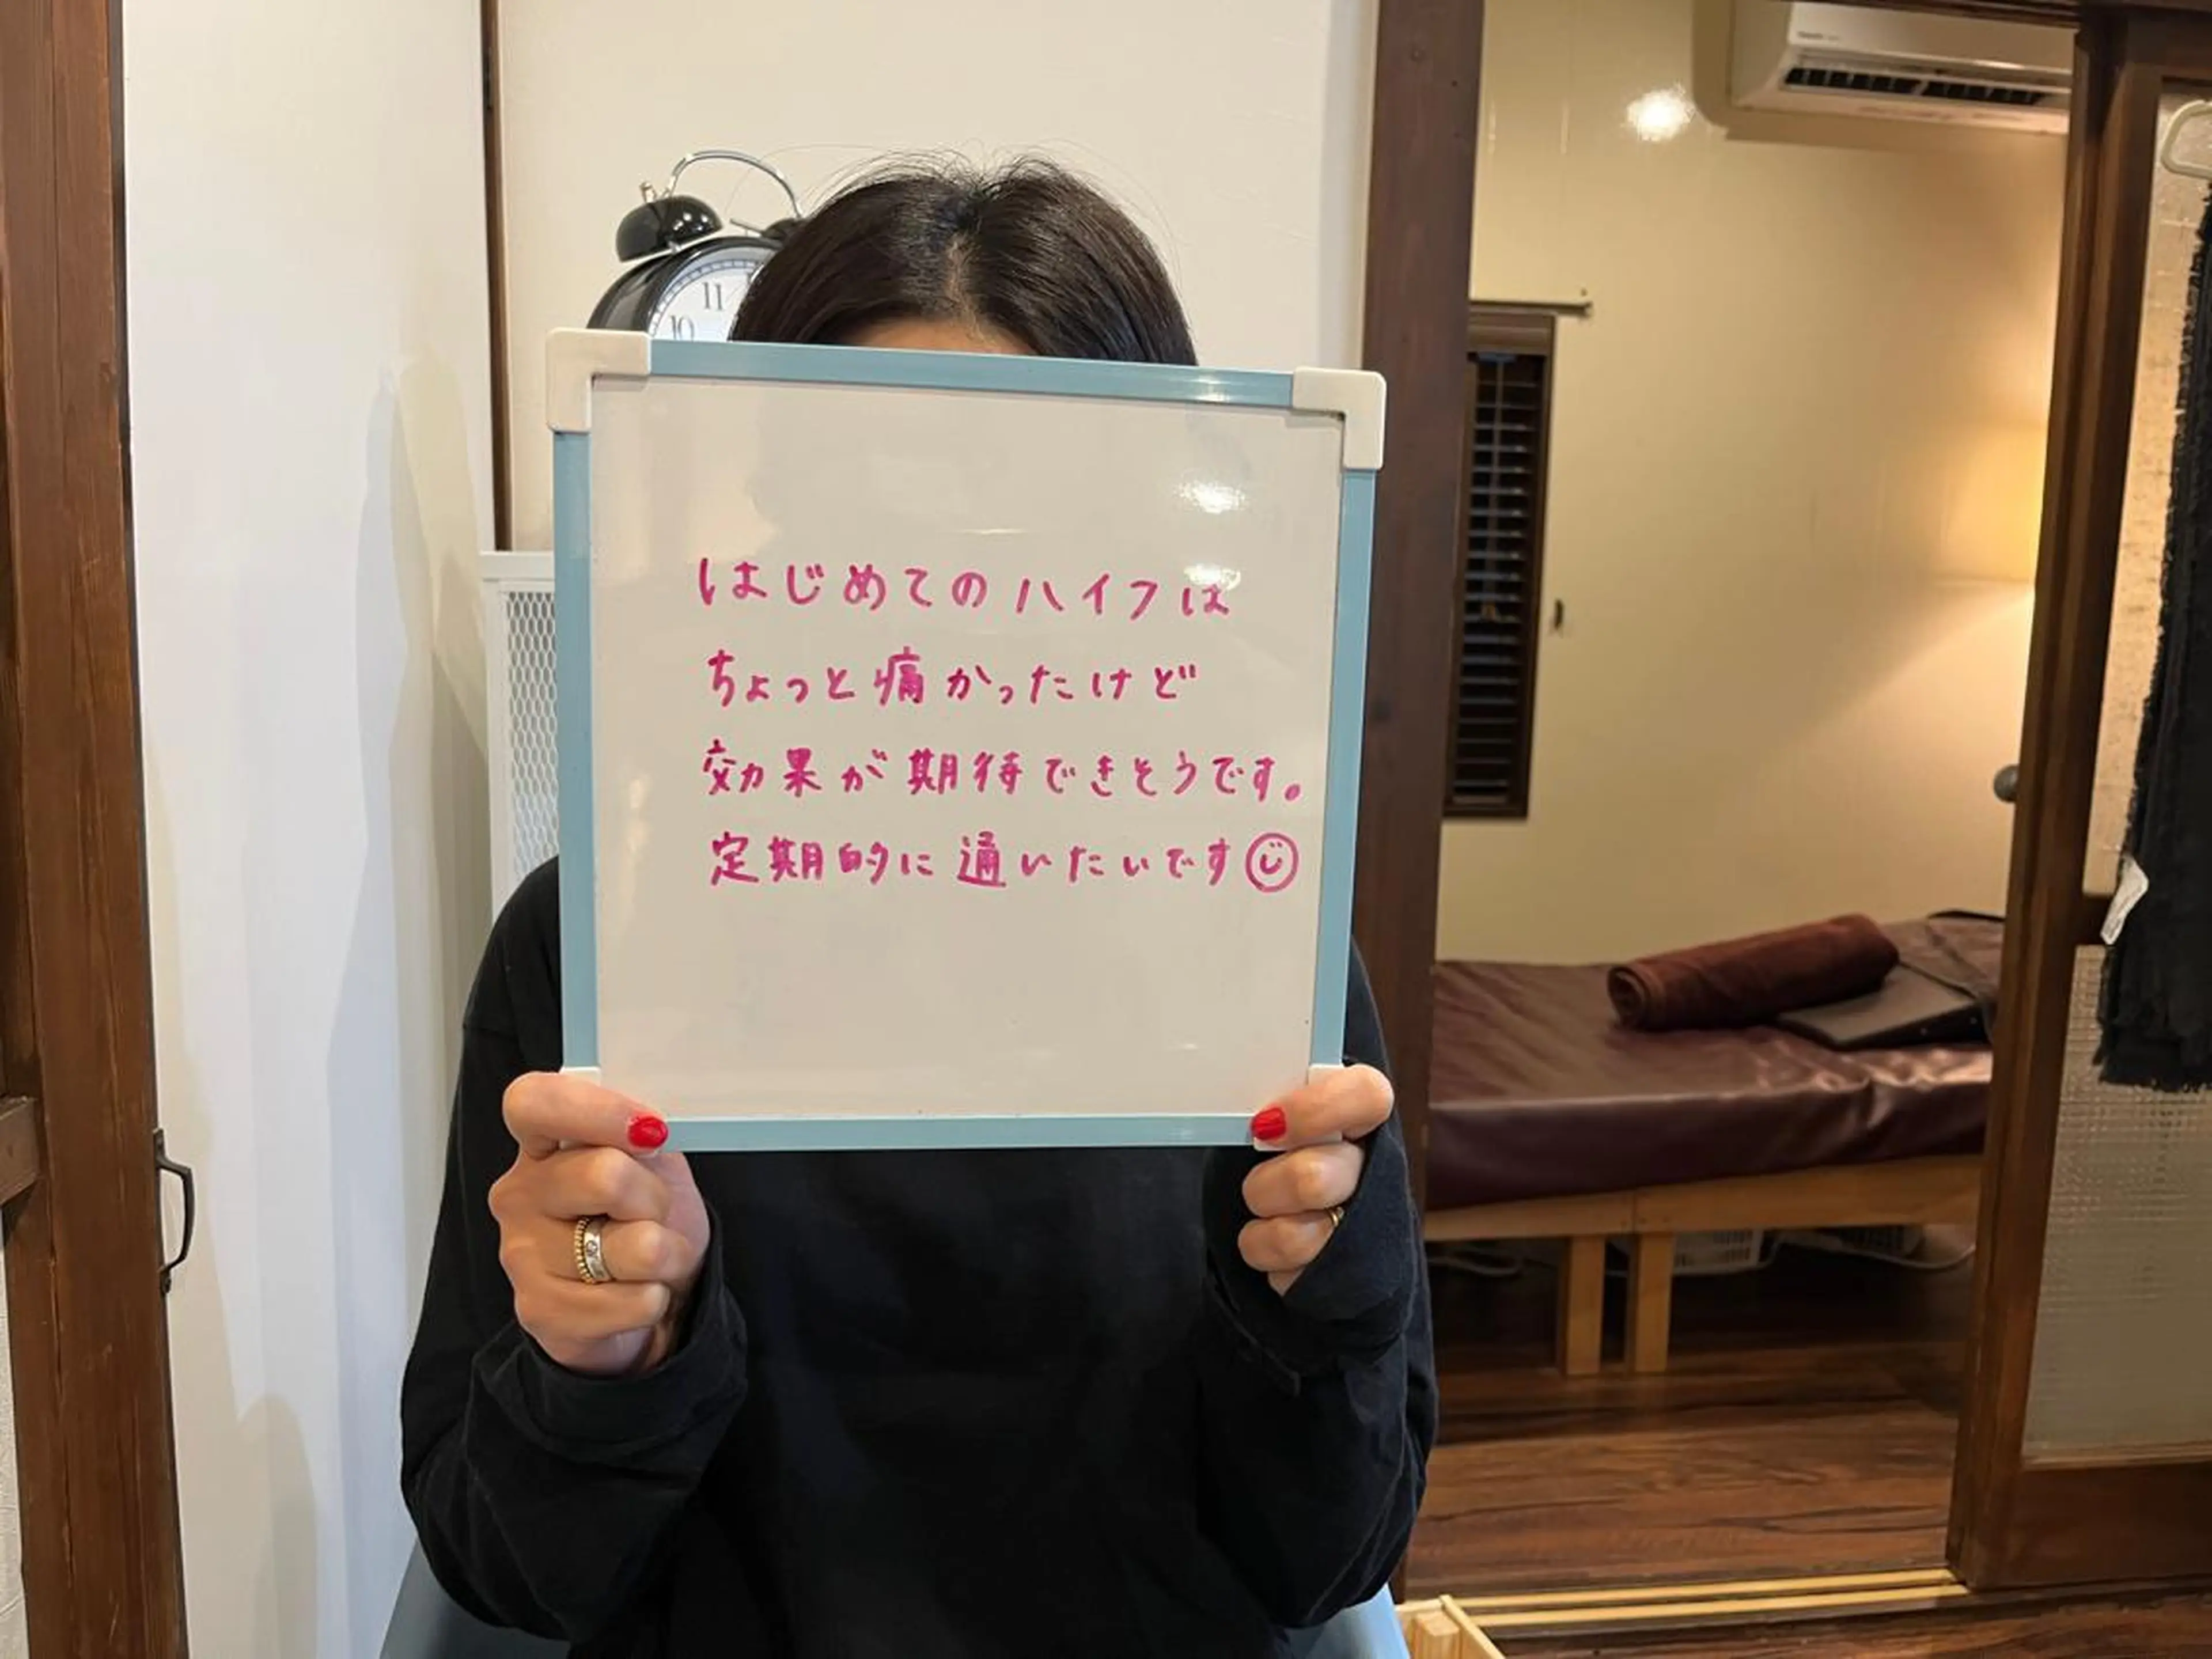 11
10
はじめてのハイフは
ちょっと痛かったけど
効果が期待できそうです。
定期的に通いたいです